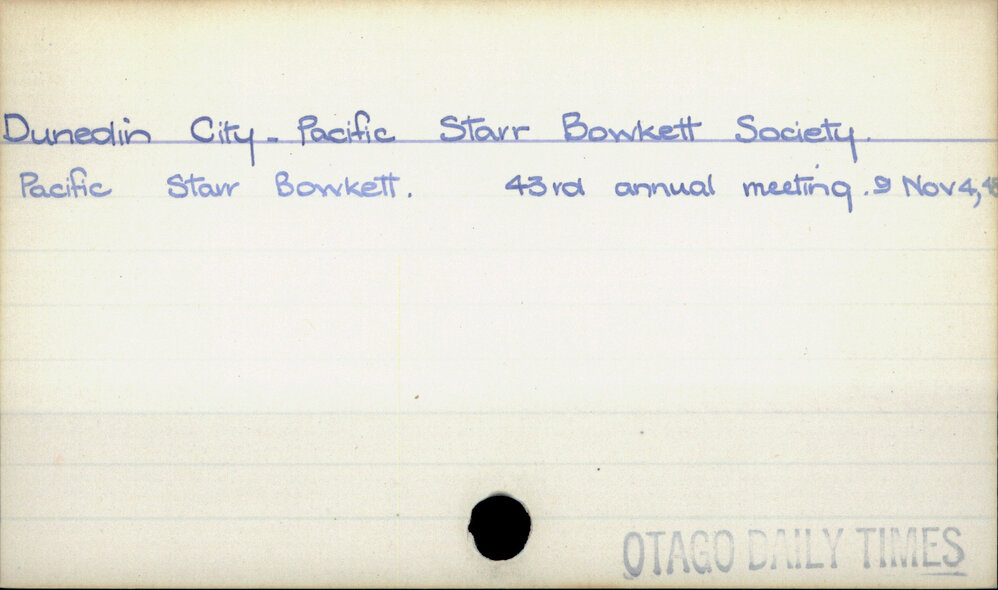 Dunedin City - Pacific Starr Bowkett Society.
Pacific Starr Bowkett. 43rd annual meeting. 9 Nov 4,
OTAGO DAILY TIMES